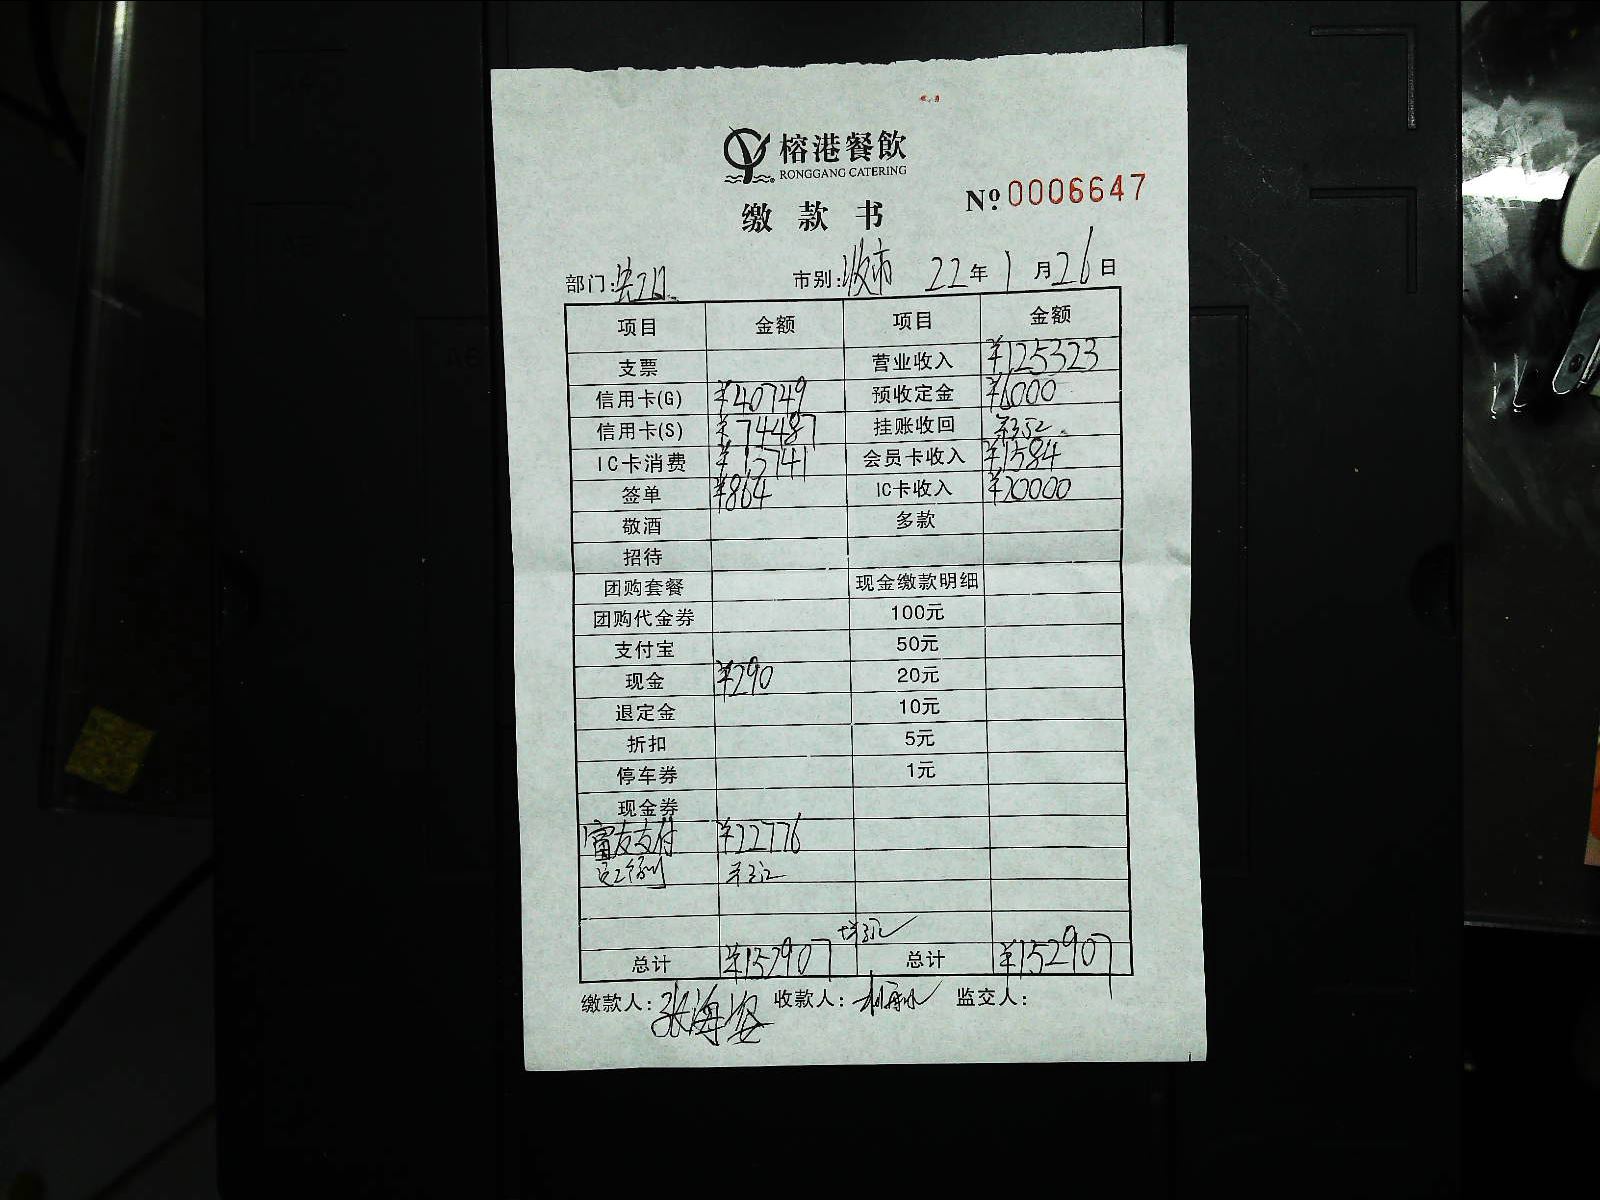 榕港餐飲
RONGGANG CATERING
缴款书
Nº 0006647
部门: 市别: 市 22年1月26日
项目 金额 项目 金额
支票 营业收入 ¥125323
信用卡(G) ¥40749 预收定金 ¥6000
信用卡(S) ¥74487 挂账收回
IC卡消费 ¥13741 会员卡收入 ¥1584
签单 ¥864 IC卡收入 ¥20000
敬酒 多款
招待
团购套餐 现金缴款明细
团购代金券 100元
支付宝 50元
现金 ¥290 20元
退定金 10元
折扣 5元
停车券 1元
现金券
富友支付 ¥22776
总计 ¥152907 总计 ¥152907
缴款人: 张海 收款人: 监交人: